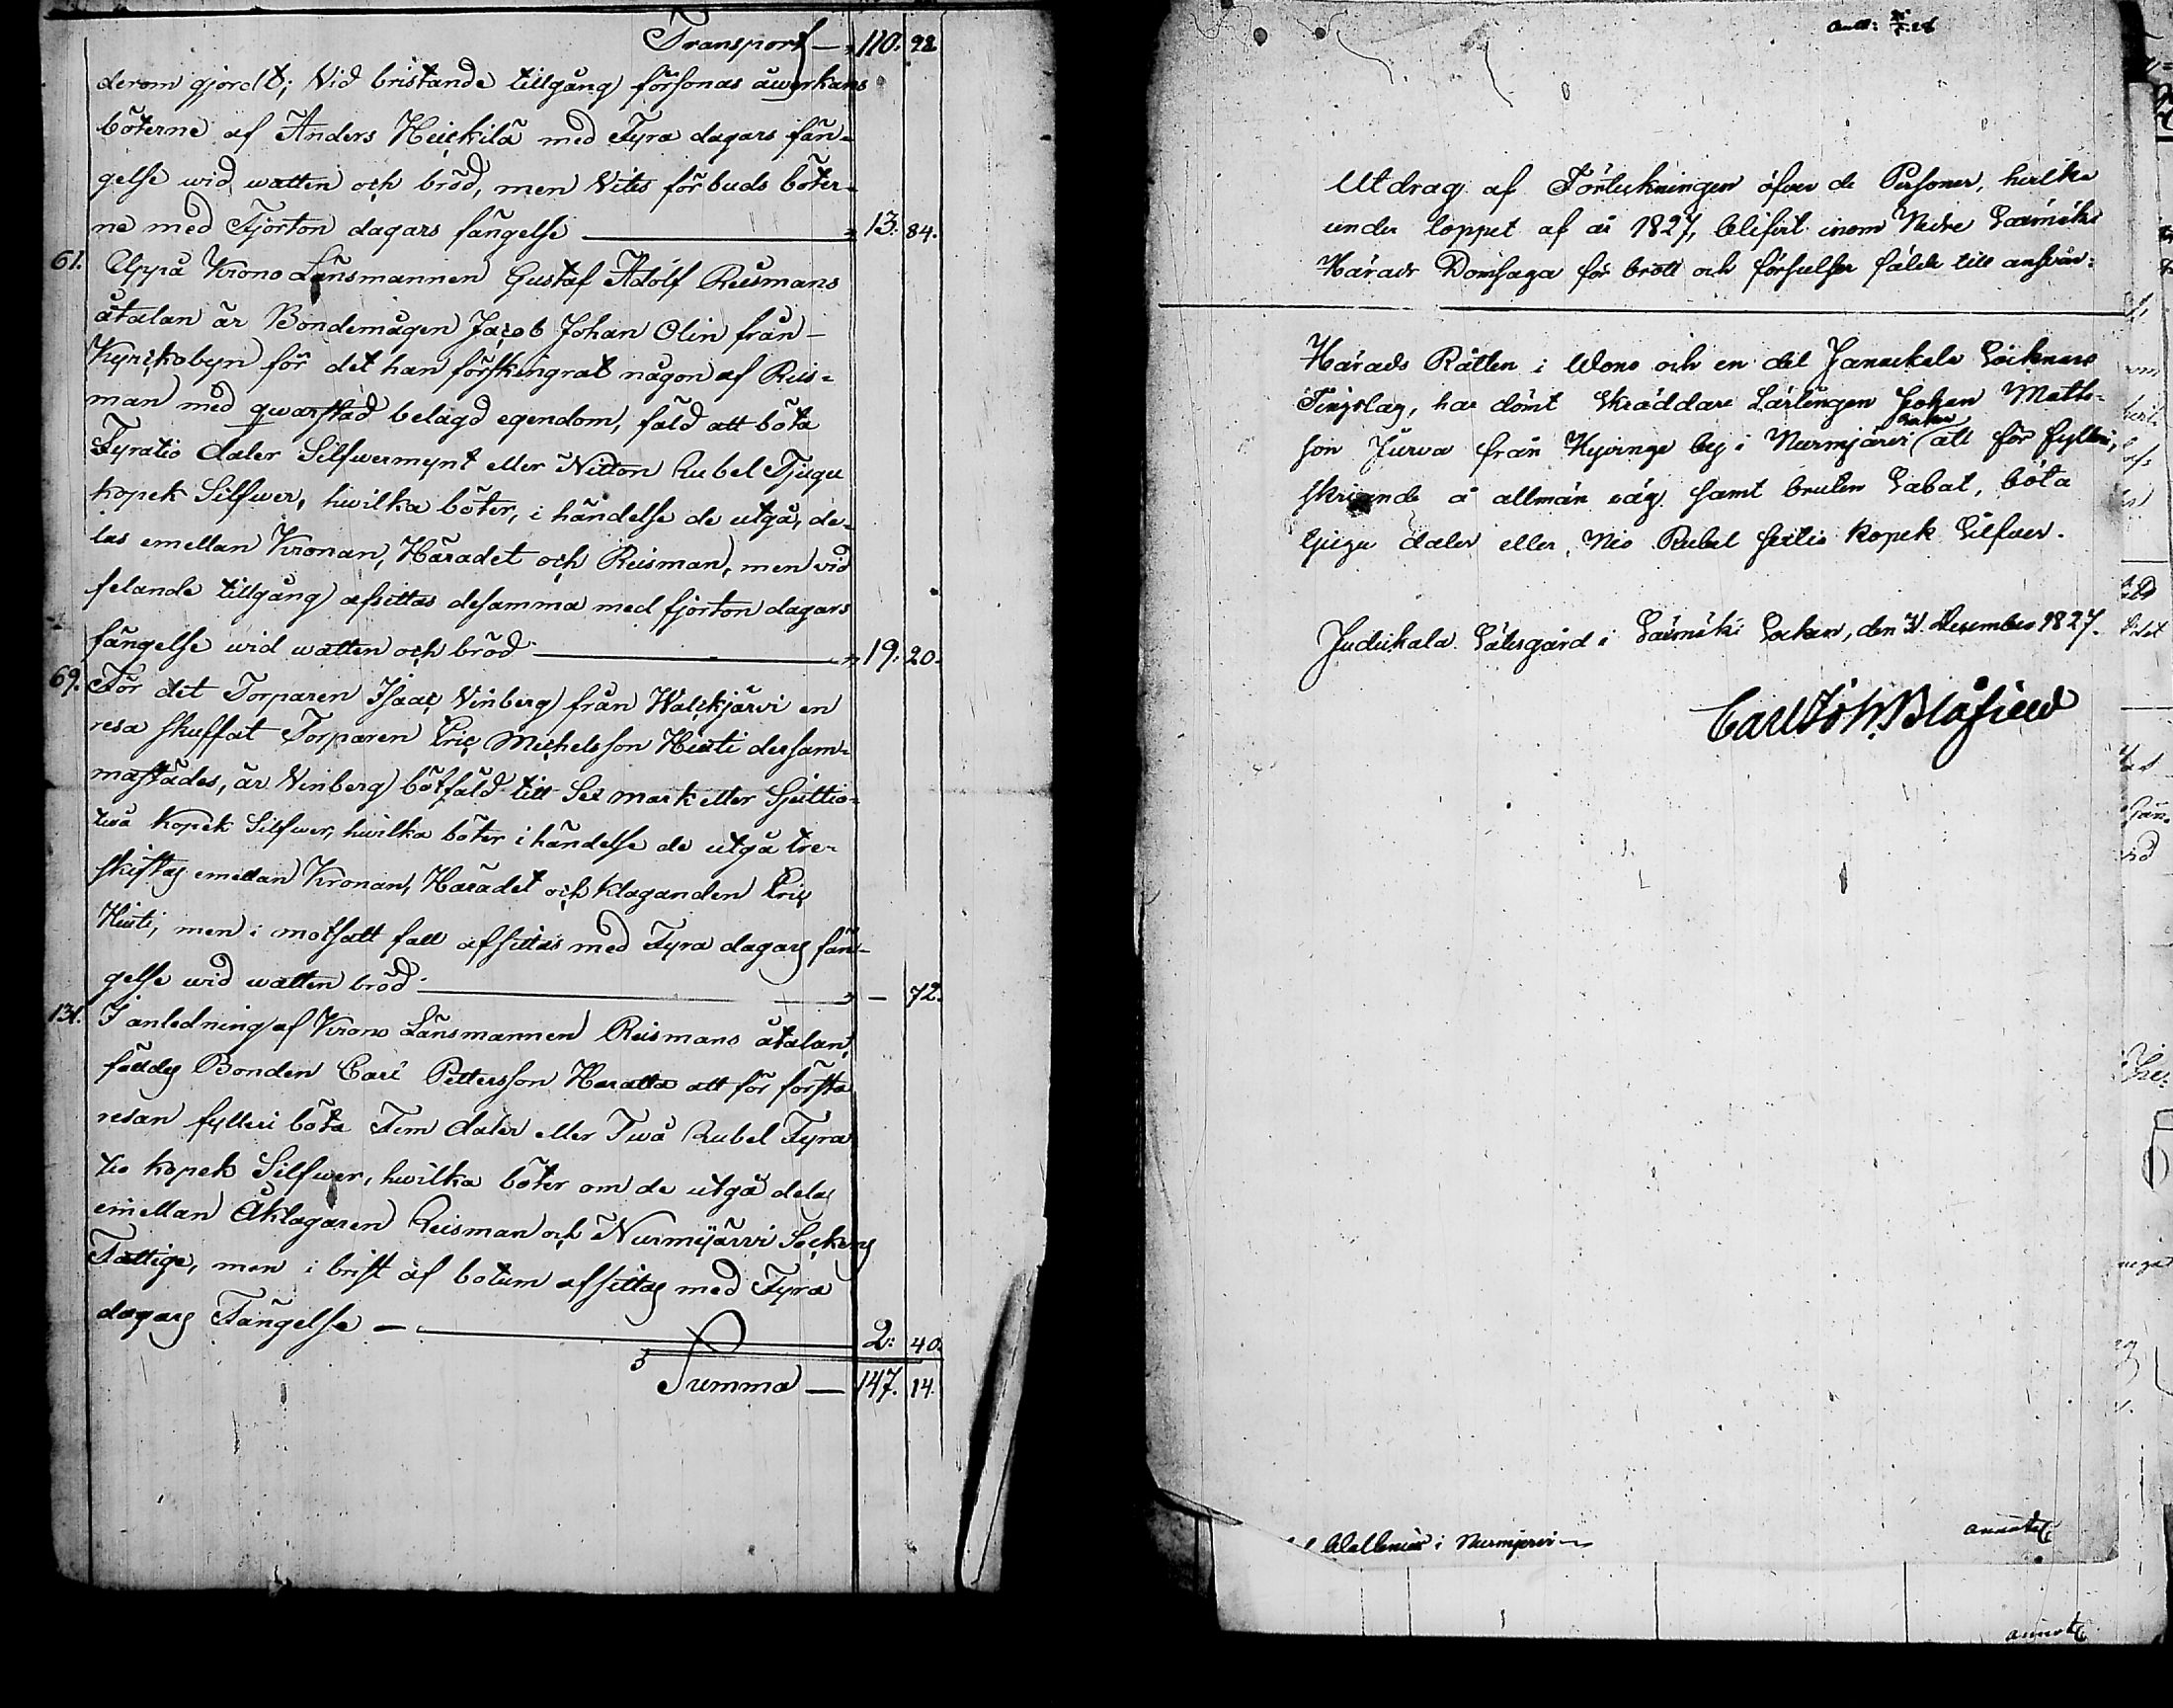 Transport — 110. 98
derom gjordt; Vid bristande tillgång försonas åwerkans
böterne af Anders Heickilä med Fyra dagars fän-
gelse wid watten och bröd, men Vites förbuds böter-
ne med Fjorton dagars fängelse — 13. 84.
61. Uppå Krono Länsmannen Gustaf Adolf Reismans
åtalan är Bondemågen Jacob Johan Olin från
Kyrckobyn för det han förskingrat någon af Reis-
man med qwarstad belagd egendom, fäld att böta
Fyratio daler Silfwermynt eller Nitton Rubel Tjugu
kopek Silfwer, hwilka böter, i händelse de utgå, de-
las emellan Kronan, Häradet och Reisman, men vid
felande tillgång afsittas desamma med fjorton dagars
fängelse wid watten och bröd — 19. 20.
69. För det Torparen Isaac Vinberg från Walckjärvi en
resa skuffat Torparen Eric Michelsson Hiisti dersam-
mastädes, är Vinberg bötfäld till Sex mark eller Sjuttio-
två kopek Silfwer, hwilka böter i händelse de utgå tre-
skiftas emellan Kronan, Häradet och klaganden Eric
Hiisti, men i motsatt fall afsittas med Fyra dagars fän-
gelse wid watten bröd — — 72.
131. I anledning af Krono Länsmannen Reismans åtalan,
fälldes Bonden Carl Pettersson Haratta att för första
resan fylleri böta Fem daler eller Twå Rubel Fyra
tio kopek Silfwer, hwilka böter om de utgå delas
emellan Åklagaren Reisman och Nurmijärvi Sockens
Fattige, men i brist af botum afsittas med Fyra
dagars Fängelse — 2: 40.
Summa — 147. 14.
Utdrag af Förteckningen öfver de Personer, hvilka
under loppet af år 1827, blifvit inom Nedre Saxmäki
Härads Domsaga för brott och förseelser fälde till ansvar:
Härads Rätten i Mono och en del Janackala Socknars
Tingslag, har dömt Skräddare Lärlingen Johan Matts-
son Jurva från Hyvinge by i Nurmijärvi Socken att för fylleri,
skriande å allmän väg samt bruten Sabat, böta
tjugu daler eller Nio Rubel sextio kopek Silfver.
Judickala Sätesgård i Saxmäki Socken, den 31 December 1827.
Carl Joh. Blåfield
i Nurmijervi
annot
annot